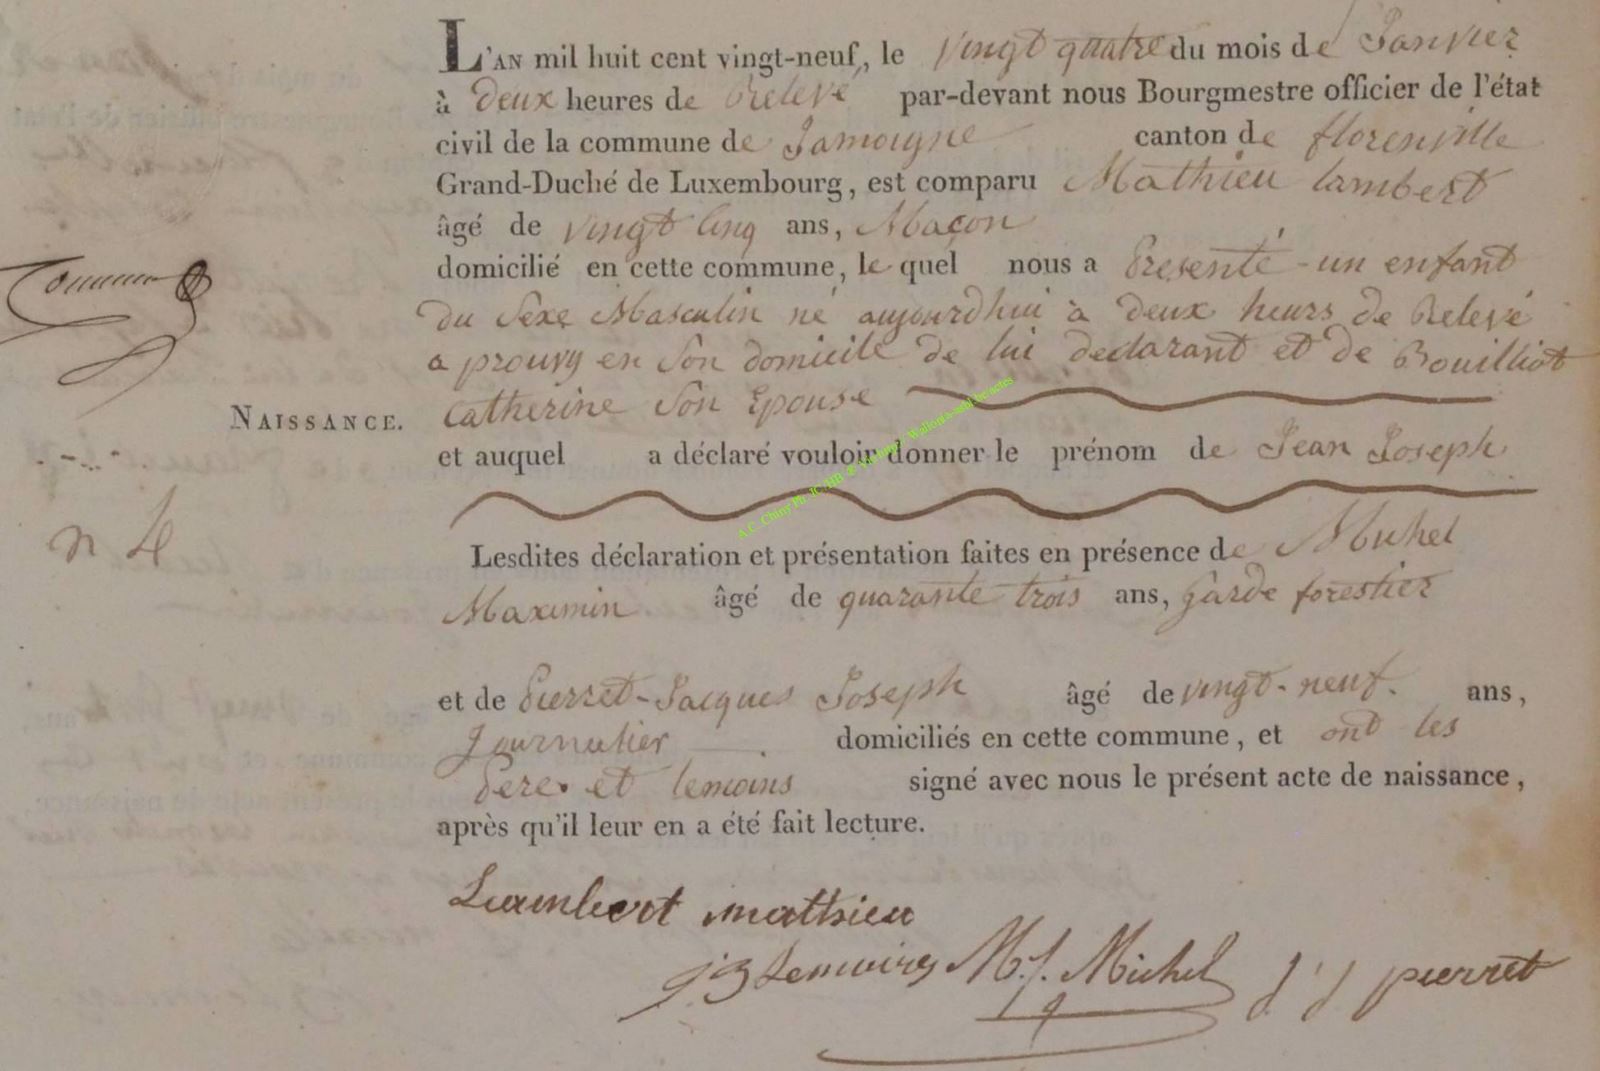 L'AN mil huit cent vingt-neuf, le vingt quatre du mois de Janvier
à deux heures de Relevé par-devant nous Bourgmestre officier de l'état
civil de la commune de Jamoigne canton de florenville
Grand-Duché de Luxembourg, est comparu Mathieu lambert
âgé de vingt Cinq ans, Maçon
domicilié en cette commune, le quel nous a Presenté - un enfant
du Sexe Masculin né aujourdhui à deux heurs de Relevé
a prouvy en Son domicile de lui declarant et de Bouilliot
Catherine Son Epouse
NAISSANCE.
et auquel a déclaré vouloir donner le prénom de Jean Joseph
A.C. Chiny Ph. JC HB © Victor © Wallonia-asbl.be/actes
n 4
Lesdites déclaration et présentation faites en présence de Michel
Maximin âgé de quarante trois ans, garde forestier
et de Pierret-Jacques Joseph âgé de vingt-neuf. ans,
Journalier domiciliés en cette commune, et ont les
Pere et temoins signé avec nous le présent acte de naissance,
après qu'il leur en a été fait lecture.
Lambert mathieu
M. J. Michel J J pierret